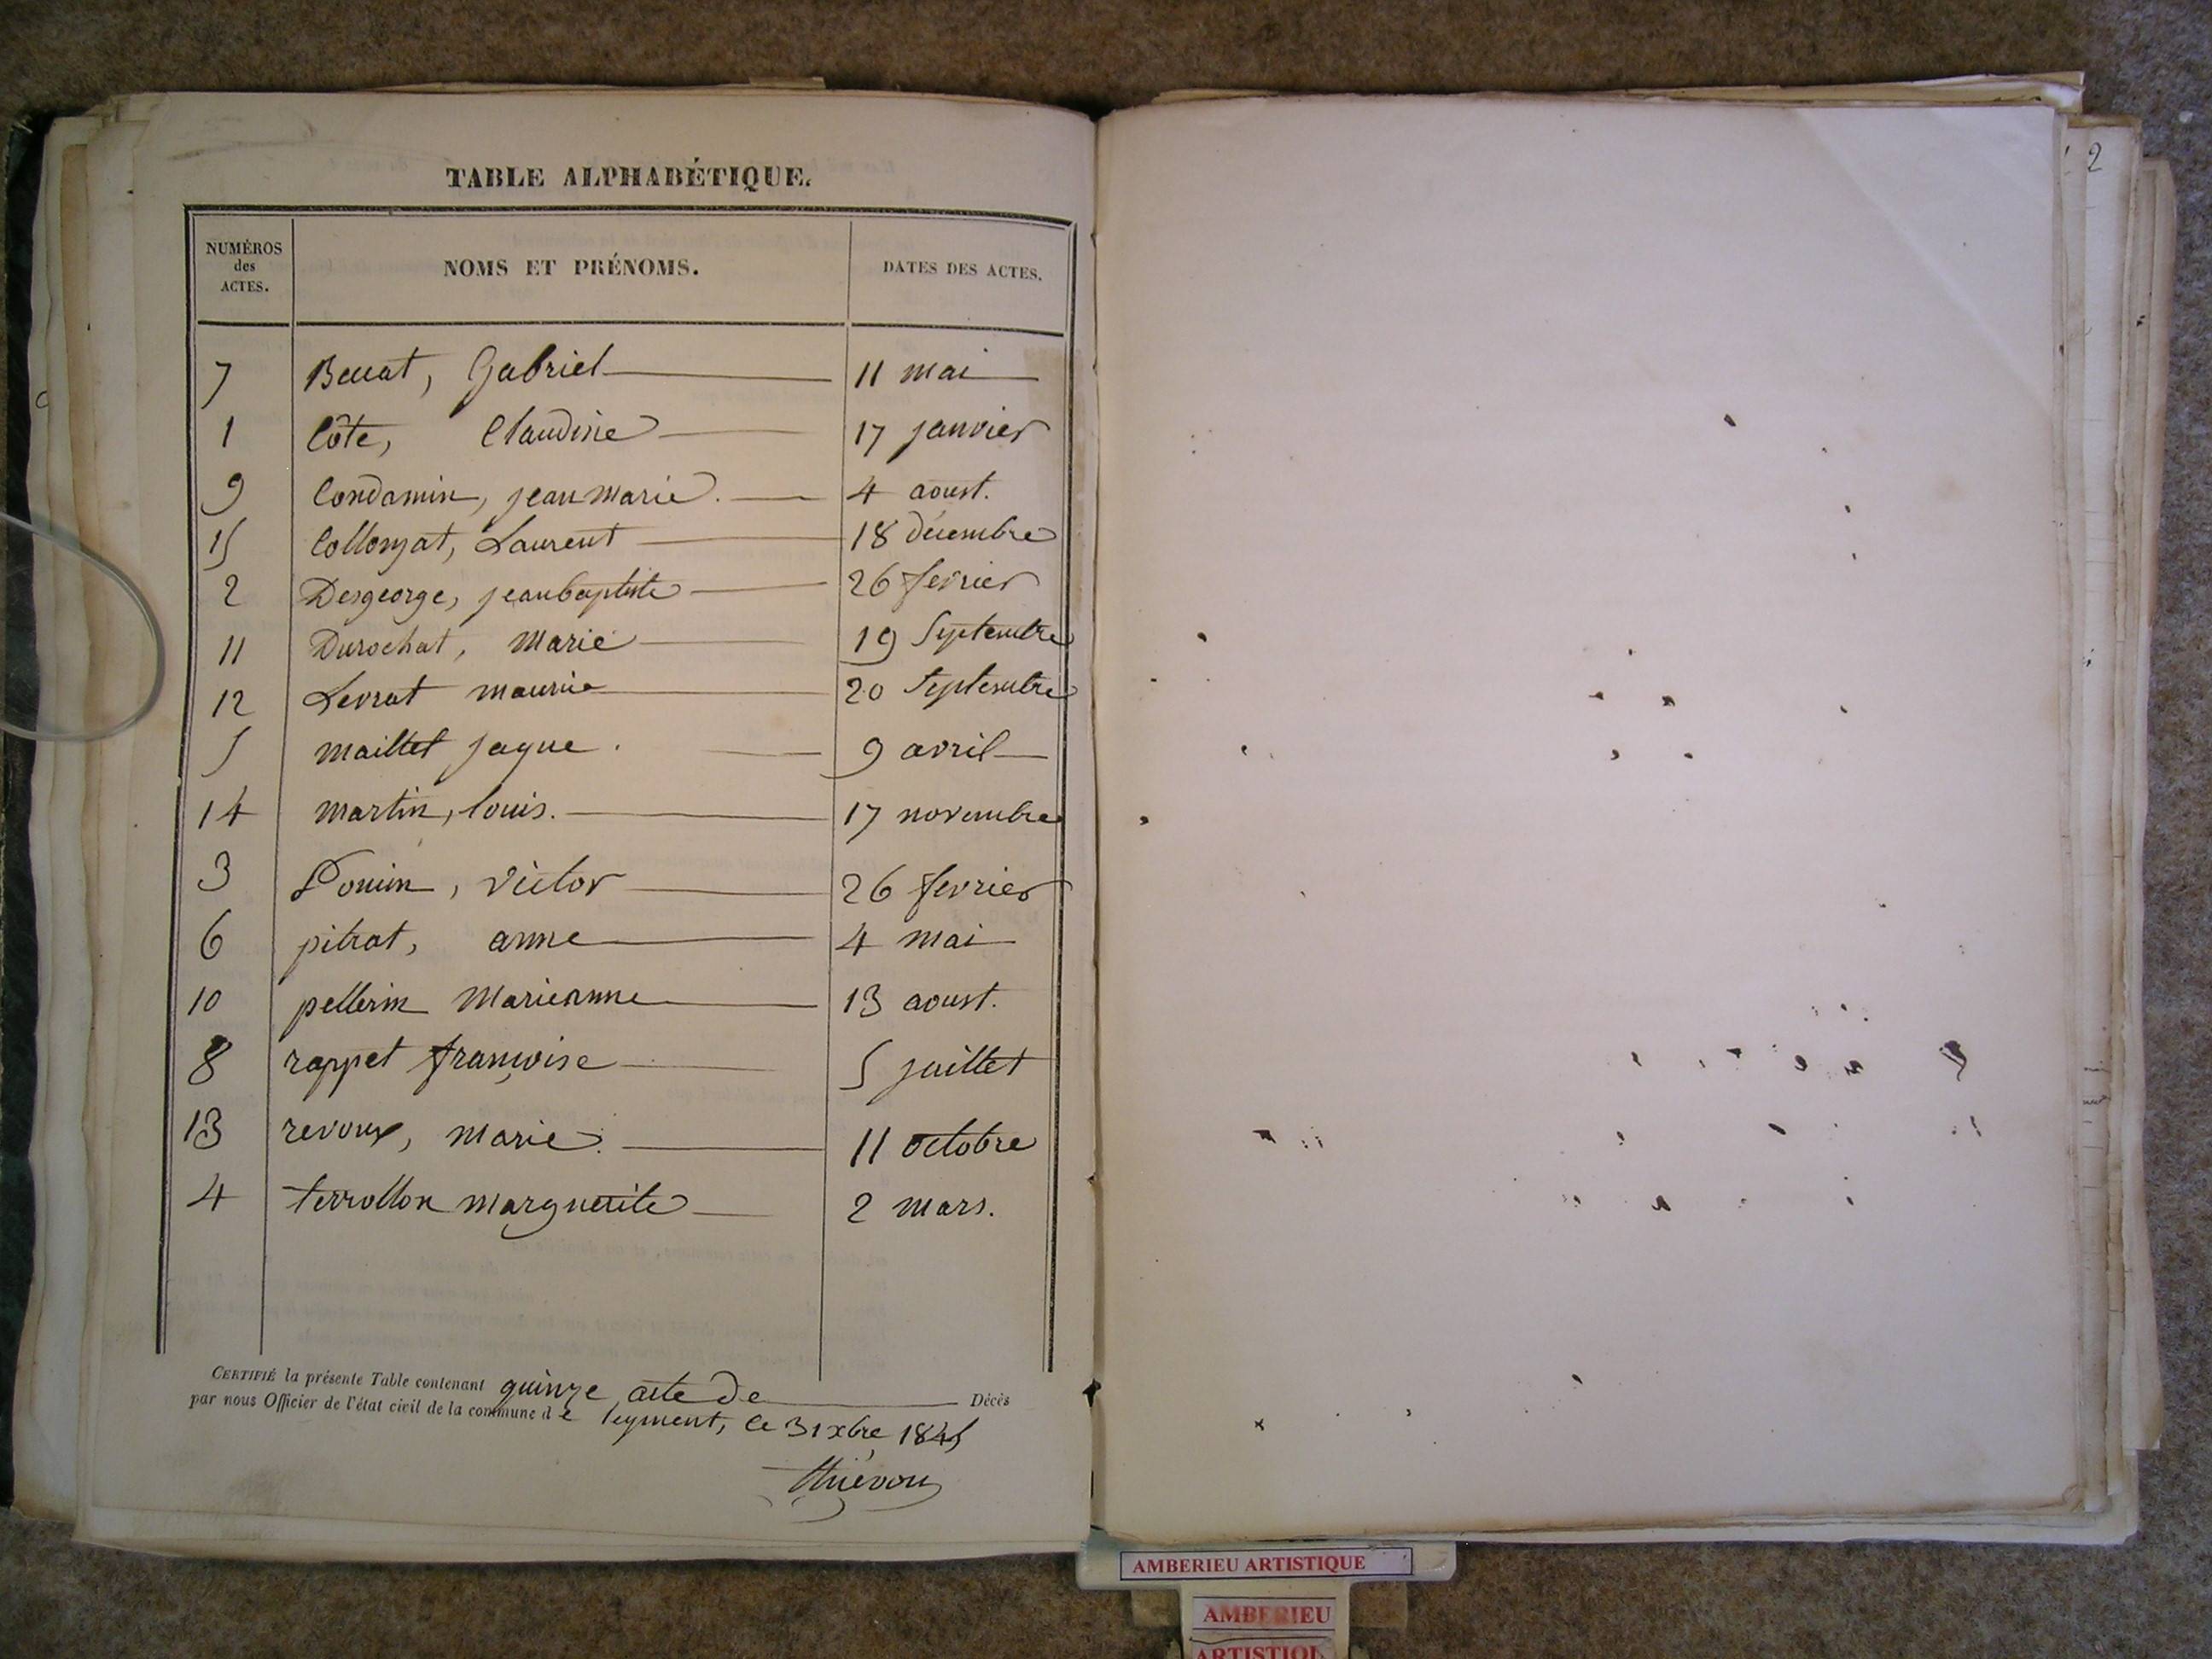 TABLE ALPHABÉTIQUE.
NUMÉROS des ACTES. NOMS ET PRÉNOMS. DATES DES ACTES.
7 Gabriel 11 mai
1 Côte, Claudine 17 janvier
9 Condamin, jean marie. 4 aoust.
15 Collomzat, Laurent 18 décembre
2 Desgeorge, jean baptiste 26 fevrier
11 Durochat, Marie 19 Septembre
12 Levrat maurice 20 Septembre
5 maillet jaque. 9 avril
14 martin, louis. 17 novembre
3 Ponin, victor 26 fevrier
6 pitrat, anne 4 mai
10 pellerin Marieanne 13 aoust.
8 rappet françoise 5 juillet
13 revoux, Marie. 11 octobre
4 terrollon marguerite 2 mars.
CERTIFIÉ la présente Table contenant quinze acte de Décès
par nous Officier de l'état civil de la commune de leyment, le 31 xbre 1845
thiévon
2
AMBERIEU ARTISTIQUE
AMBERIEU
ARTISTIQU